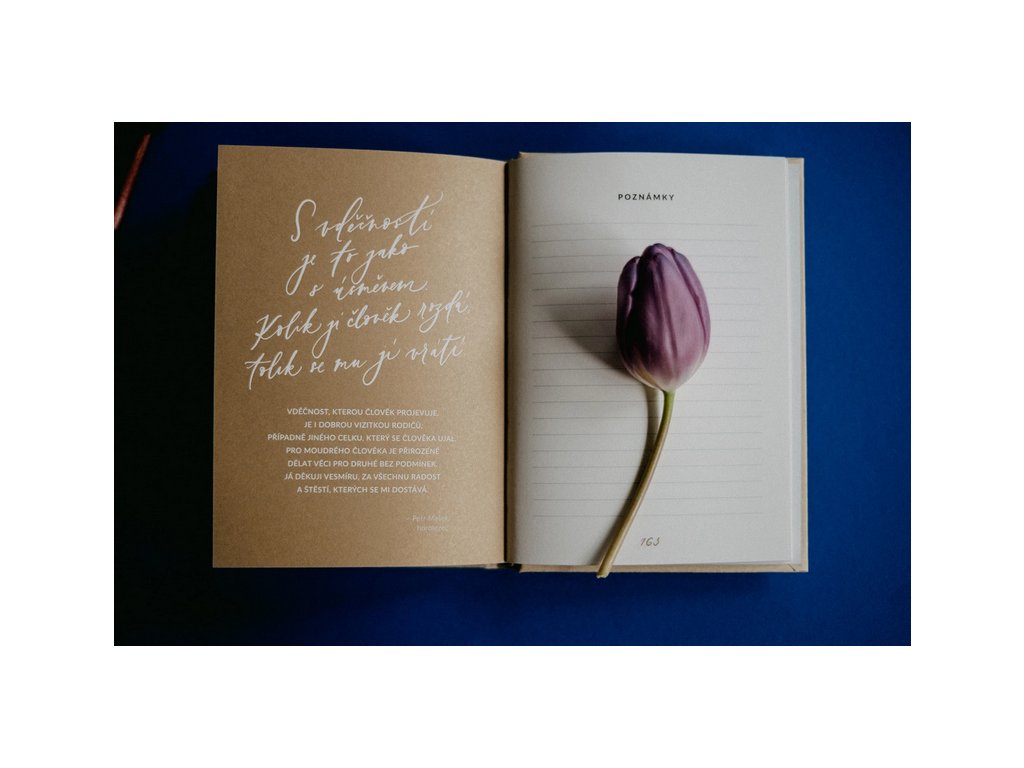 S vděčností
je to jako
s úsměvem.
Kolik jí člověk rozdá,
tolik se mu jí vrátí
VDĚČNOST, KTEROU ČLOVĚK PROJEVUJE,
JE I DOBROU VIZITKOU RODIČŮ,
PŘÍPADNĚ JINÉHO CELKU, KTERÝ SE ČLOVĚKA UJAL.
PRO MOUDRÉHO ČLOVĚKA JE PŘIROZENÉ
DĚLAT VĚCI PRO DRUHÉ BEZ PODMÍNEK.
JÁ DĚKUJI VESMÍRU, ZA VŠECHNU RADOST
A ŠTĚSTÍ, KTERÝCH SE MI DOSTÁVÁ.
– Petr Mašek,
horolezec
POZNÁMKY